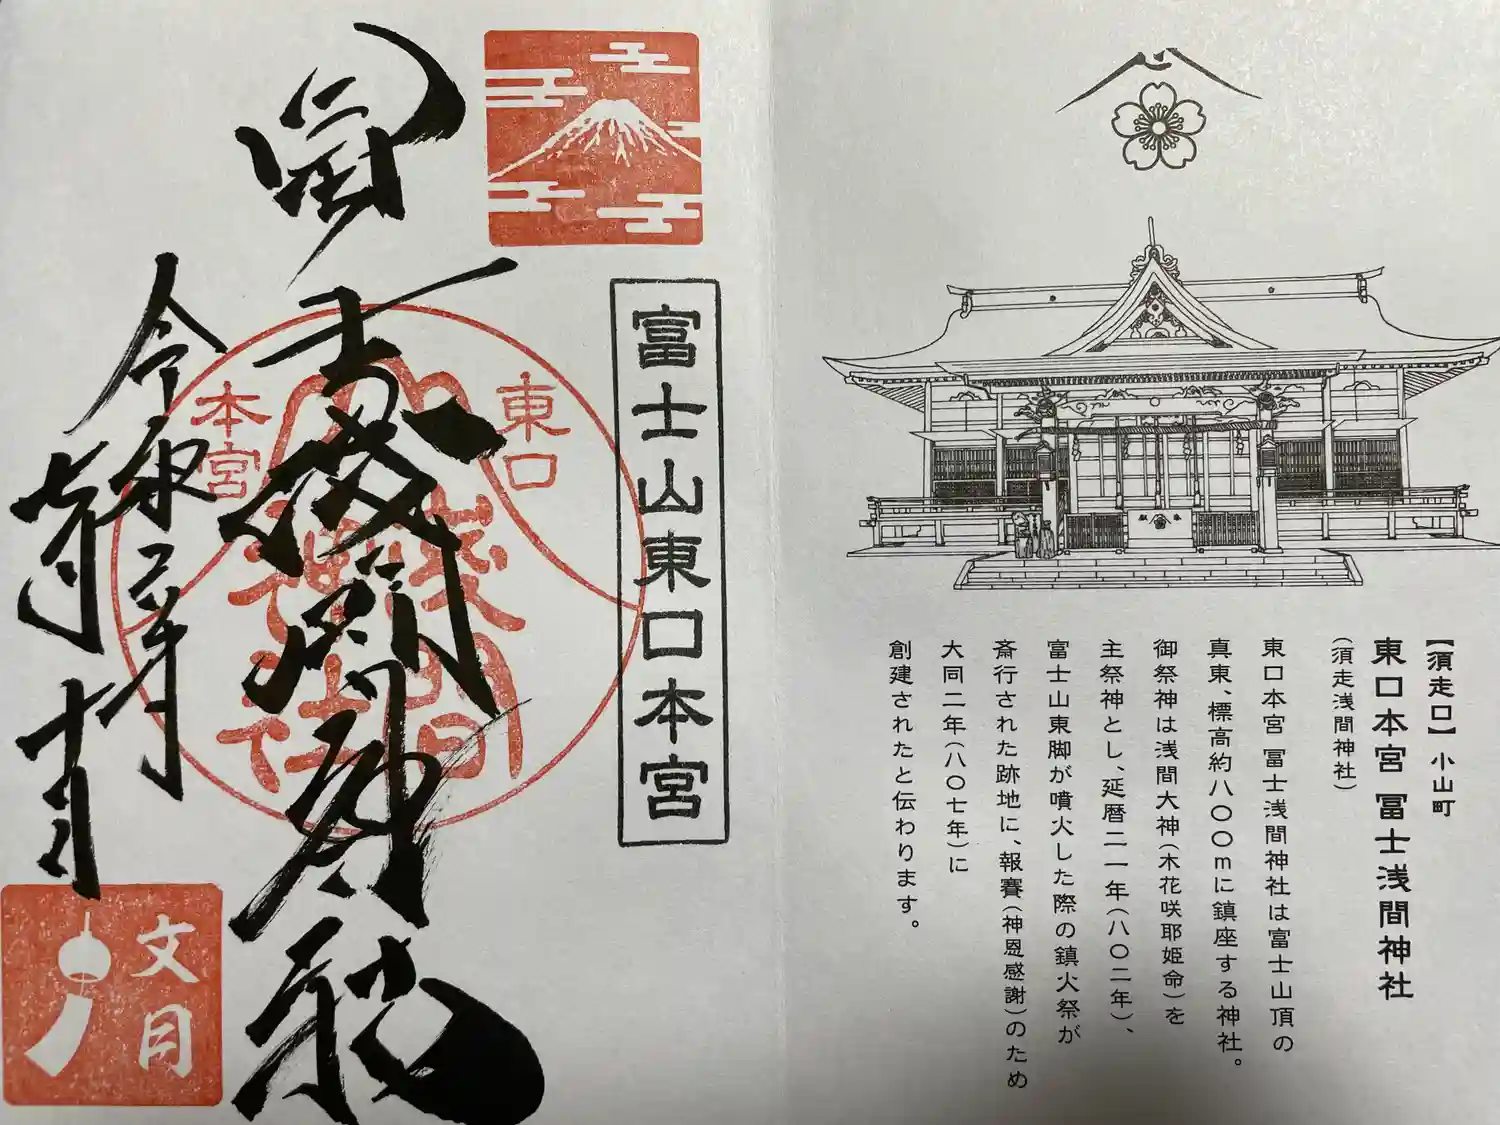 【須走口】小山町
東口本宮 冨士浅間神社
(須走浅間神社)
東口本宮 冨士浅間神社は富士山頂の
真東、標高約八〇〇mに鎮座する神社。
御祭神は浅間大神(木花咲耶姫命)を
主祭神とし、延暦二一年(八〇二年)、
富士山東脚が噴火した際の鎮火祭が
斎行された跡地に、報賽(神恩感謝)のため
大同二年(八〇七年)に
創建されたと伝わります。
富士山東口本宮
東口
本宮
浅間
神社
冨士浅間神社
令和
文月